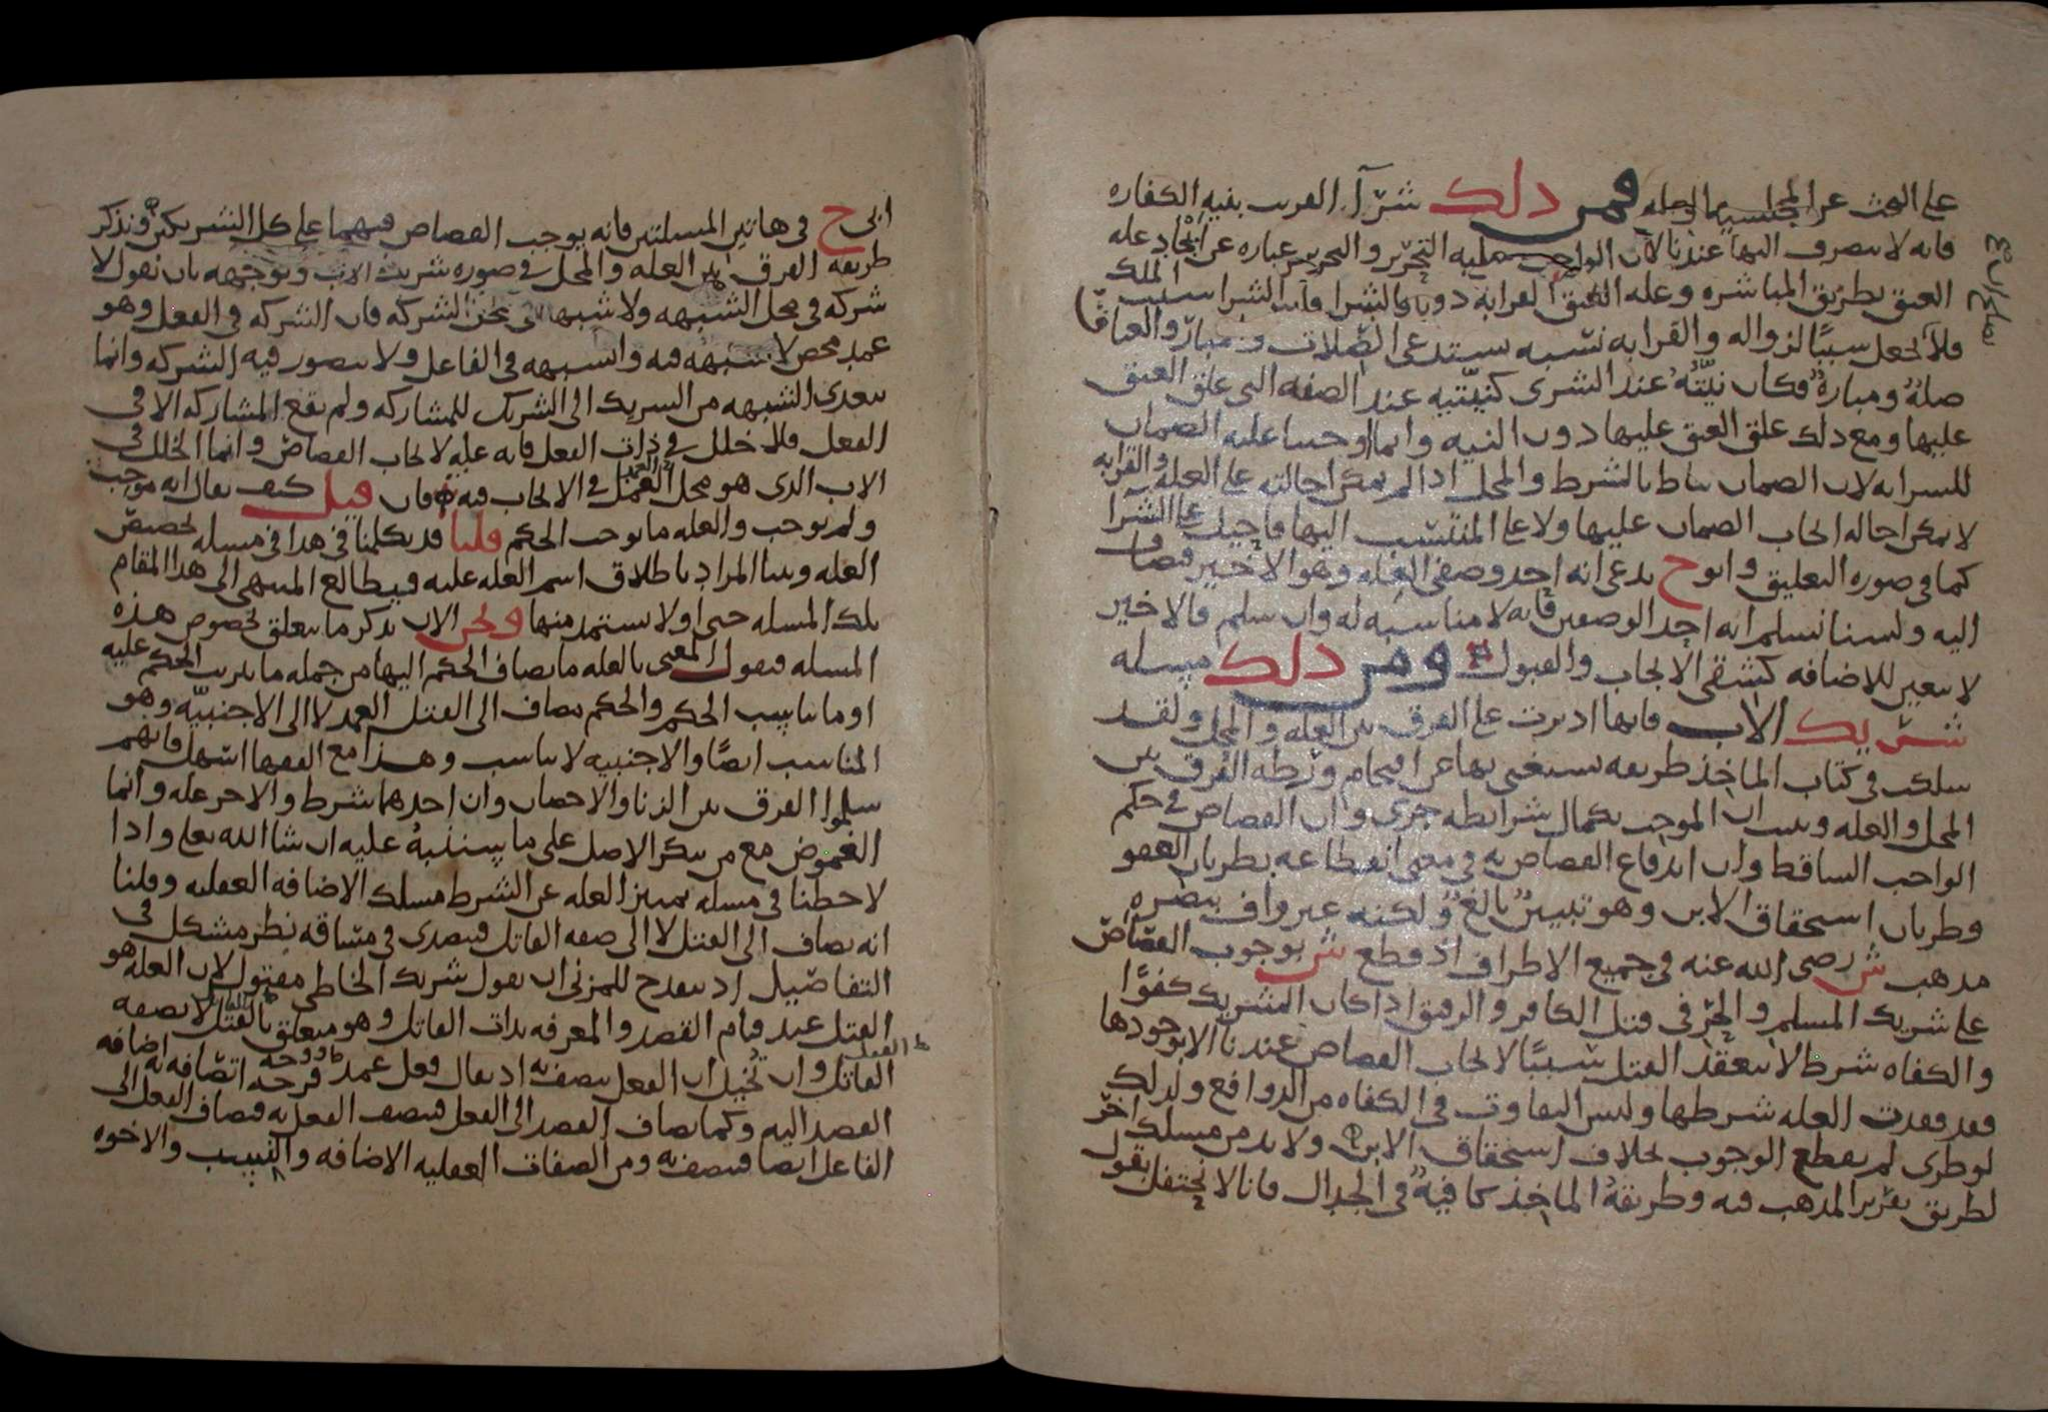 على البحث عن المحل فمن ذلك شرآ القريب بنية الكفاره
فانه لا ينصرف اليها عندنا لان الواجب عليه التحرير والتحرير عباره عن ايجاد عله
العتق بطريق المباشره وعله العتق القرابه دون الشرا فان الشرا سبب الملك
فلا يجعل سببًا لزواله والقرابه نسبه تستدعي الصلات ومبارّ والعتاق
صلةٌ ومبارةٌ فكان نيّتُه عند الشرى كنيّتيه عند الصفه التي علق العتق
عليها ومع ذلك علق العتق عليها دون النيه وانما اوجبنا عليه الضمان
للسرايه لان الضمان يناط بالشرط والمحل اذا لم يمكن احالته على العله والقرابه
لا يمكن احاله ايجاب الضمان عليها ولا على المنتسب اليها فاحيل على الشرا
كما في صوره التعليق وابو ح يدعى انه احد وصفى العله وهو الاخير فيضاف
اليه ولسنا نسلم انه احد الوصفين فانه لا مناسبه له وان سلم فالاخير
لا يتعين للاضافه كشقى الايجاب والقبول ومن ذلك مسله
شريك الاب فانها اديرت على الفرق بين العله والمحل ولقد
سلكت في كتاب الماخذ طريقه يستغنى بها عن اقتحام ورطه الفرق بين
المحل والعله وبينت ان الموجب بكمال شرائطه جرى وان القصاص في حكم
الواجب الساقط وان اندفاع القصاص به في معنى انقطاعه بطريان العفو
وطريان استحقاق الابن وهو تبيينٌ بالغٌ ولكنه غير واف بنصره
مذهب ش رضى الله عنه في جميع الاطراف اذ قطع ش بوجوب القصاص
على شريك المسلم والحرّ في قتل الكافر والرقيق اذا كان الشريك كفوًا
والكفاه شرط لا ينعقد القتل سببًا لايجاب القصاص عندنا الا بوجودها
فقد فقدت العله شرطها وليس التفاوت في الكفاه من الدوافع ولذلك
لو طرى لم يقطع الوجوب بخلاف استحقاق الابن ولا بد من مسلك اخر
لطريق تقرير المذهب فيه وطريقةُ الماخذ كافيةٌ في الجدال فانا لا نحتفل بقول
ابى ح في هاتين المسلتين فانه يوجب القصاص فيهما على كل الشريكين فنذكر
طريقه الفرق بين العله والمحل في صوره شريك الاب وتوجيهه بان نقول لا
شركه في محل الشبهه ولا شبهه في محل الشركه فان الشركه في الفعل وهو
عمد محض لا شبهه فيه والشبهه في الفاعل ولا يتصور فيه الشركه وانما
يتعدى الشبهه من الشريك الى الشريك للمشاركه ولم يقع المشاركه الا في
الفعل فلا خلل في ذات الفعل فانه عله لايجاب القصاص وانما الخلل في
الاب الذى هو محل العمل في الايجاب فيه فان قيل كيف يقال انه موجب
ولم يوجب والعله ما يوجب الحكم قلنا قد تكلمنا في هذا في مسله تخصيص
العله وبينا المراد باطلاق اسم العله عليه فيطالع المنتهى الى هذا المقام
تلك المسله حتى اولا يستمد منها ونحن الان نذكر ما يتعلق بخصوص هذه
المسله فنقول المعنى بالعله ما يضاف الحكم اليها من جمله ما يترتب الحكم عليه
او ما يناسب الحكم والحكم يضاف الى القتل العمد لا الى الاجنبيّه وهو
المناسب ايضًا والاجنبيه لا يناسب وهذا مع الفقها اسهل فانهم
سلموا الفرق بين الزنا والاحصان وان احدهما شرط والاخر عله وانما
الغموض مع من ينكر الاصل على ما سننبهُ عليه ان شا الله تعلى واذا
لاحظنا في مسله تمييز العله عن الشرط مسلك الاضافه العقليه وقلنا
انه يضاف الى القتل لا الى صفه القاتل فيتصدى في مساقه نظر مشكل في
التفاصيل اذ ينقدح للمزنى ان يقول شريك الخاطى مقتول لان العله هو
القتل عند قيام القصد والمعرفه بذات القاتل وهو متعلق بالقتل لا بصفه
القاتل وان تُخيل ان الفعل يتصف به اذ يقال فعل عمد فوجه اتصافه به اضافه
القصد اليه وكما يضاف القصد الى الفعل فيتصف الفعل به فيضاف الفعل الى
الفاعل ايضا فيتصف به ومن الصفات العقليه الاضافه والنسب والاخوه